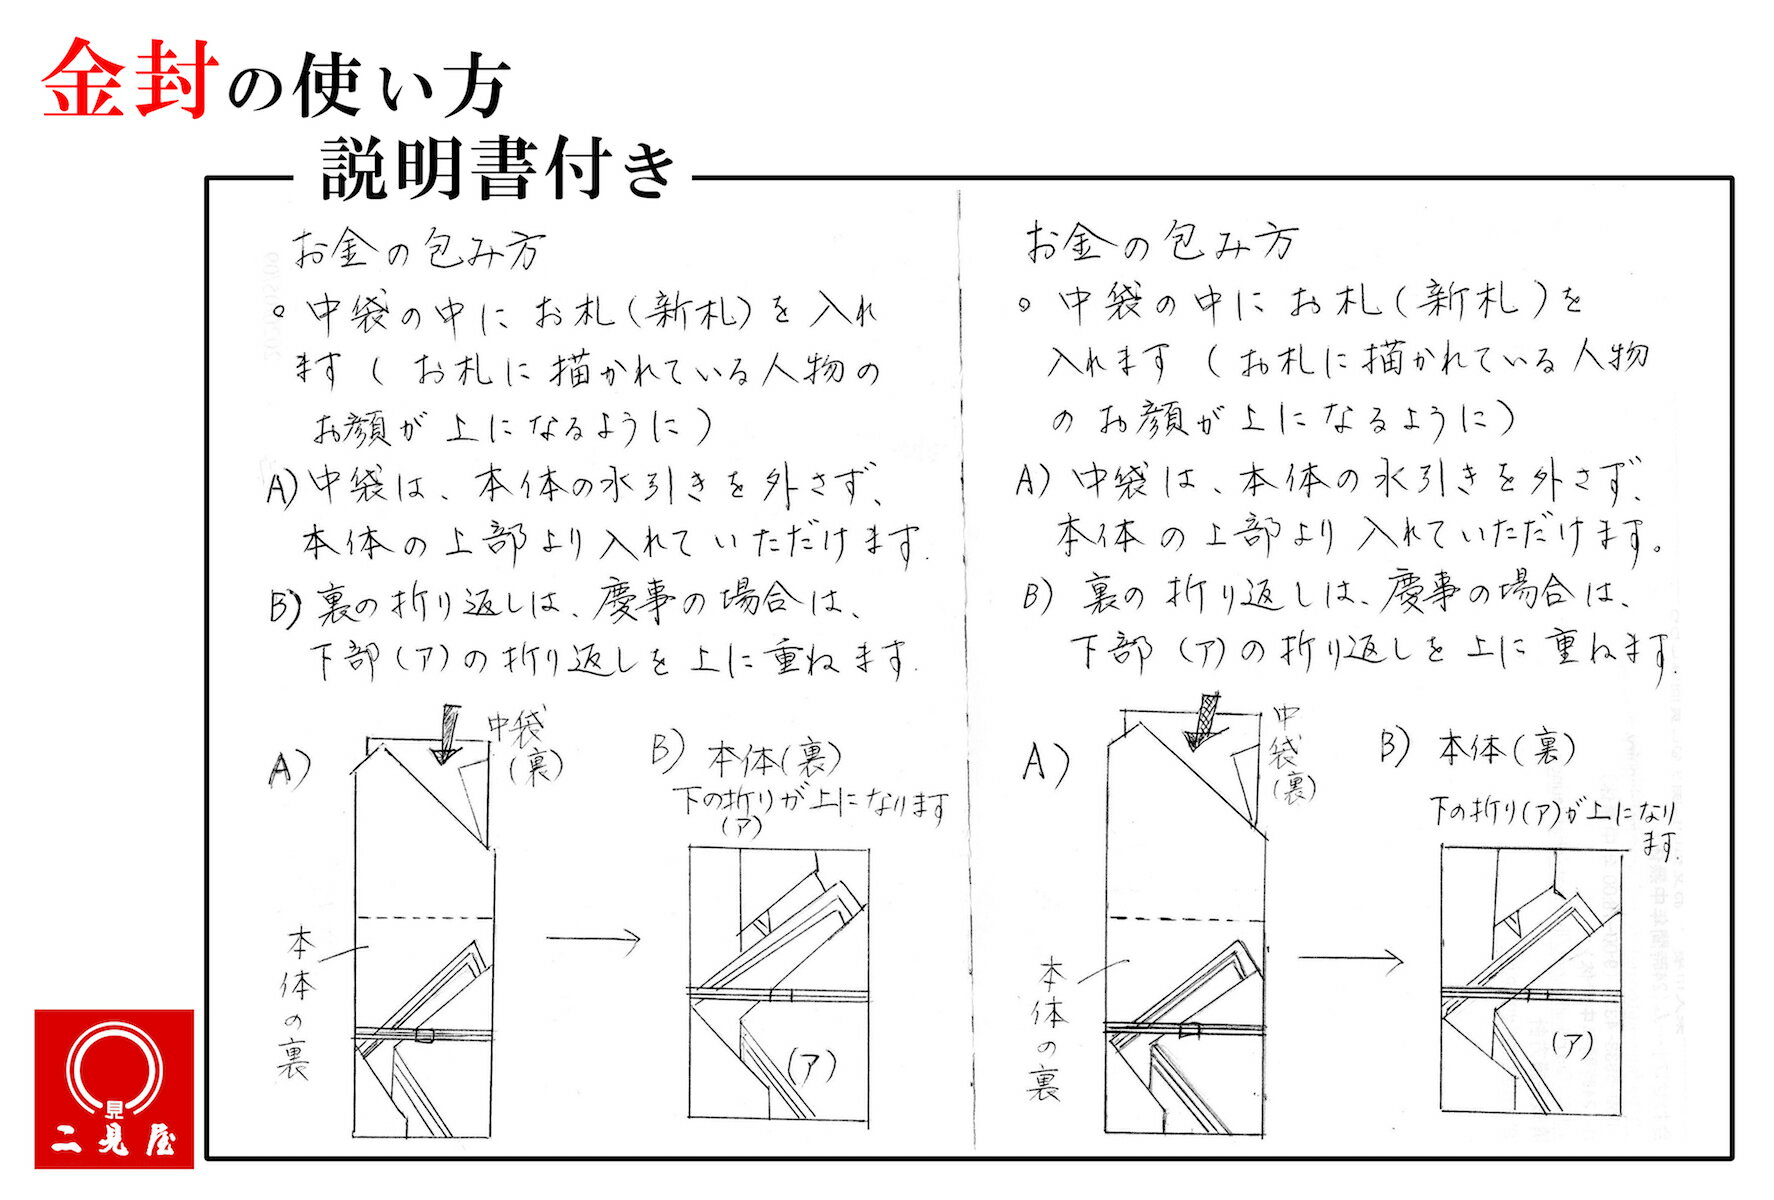 金封の使い方
説明書付き
お金の包み方
。中袋の中にお札(新札)を入れ
ます(お札に描かれている人物の
お顔が上になるように)
A)中袋は、本体の水引きを外さず、
本体の上部より入れていただけます.
B)裏の折り返しは、慶事の場合は、
下部(ア)の折り返しを上に重ねます.
A)
中袋
(裏)
本体の裏
B)本体(裏)
下の折りが上になります
(ア)
(ア)
お金の包み方
。中袋の中にお札(新札)を
入れます(お札に描かれている人物
のお顔が上になるように)
A)中袋は、本体の水引きを外さず、
本体の上部より入れていただけます。
B)裏の折り返しは、慶事の場合は、
下部(ア)の折り返しを上に重ねます.
A)
中袋(裏)
本体の裏
B)本体(裏)
下の折り(ア)が上になり
ます.
(ア)
見
二見屋